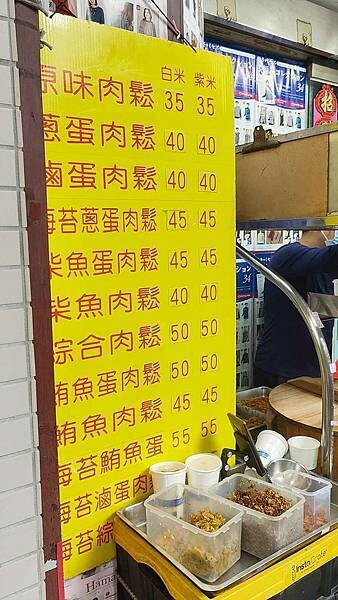 白米 紫米
原味肉鬆 35 35
蔥蛋肉鬆 40 40
滷蛋肉鬆 40 40
海苔蔥蛋肉鬆 45 45
柴魚蛋肉鬆 45 45
柴魚肉鬆 40 40
綜合肉鬆 50 50
鮪魚蛋肉鬆 50 50
鮪魚肉鬆 45 45
海苔鮪魚蛋 55 55
海苔滷蛋肉
海苔綜
招
34
ション
34
InstaCrate
Hama